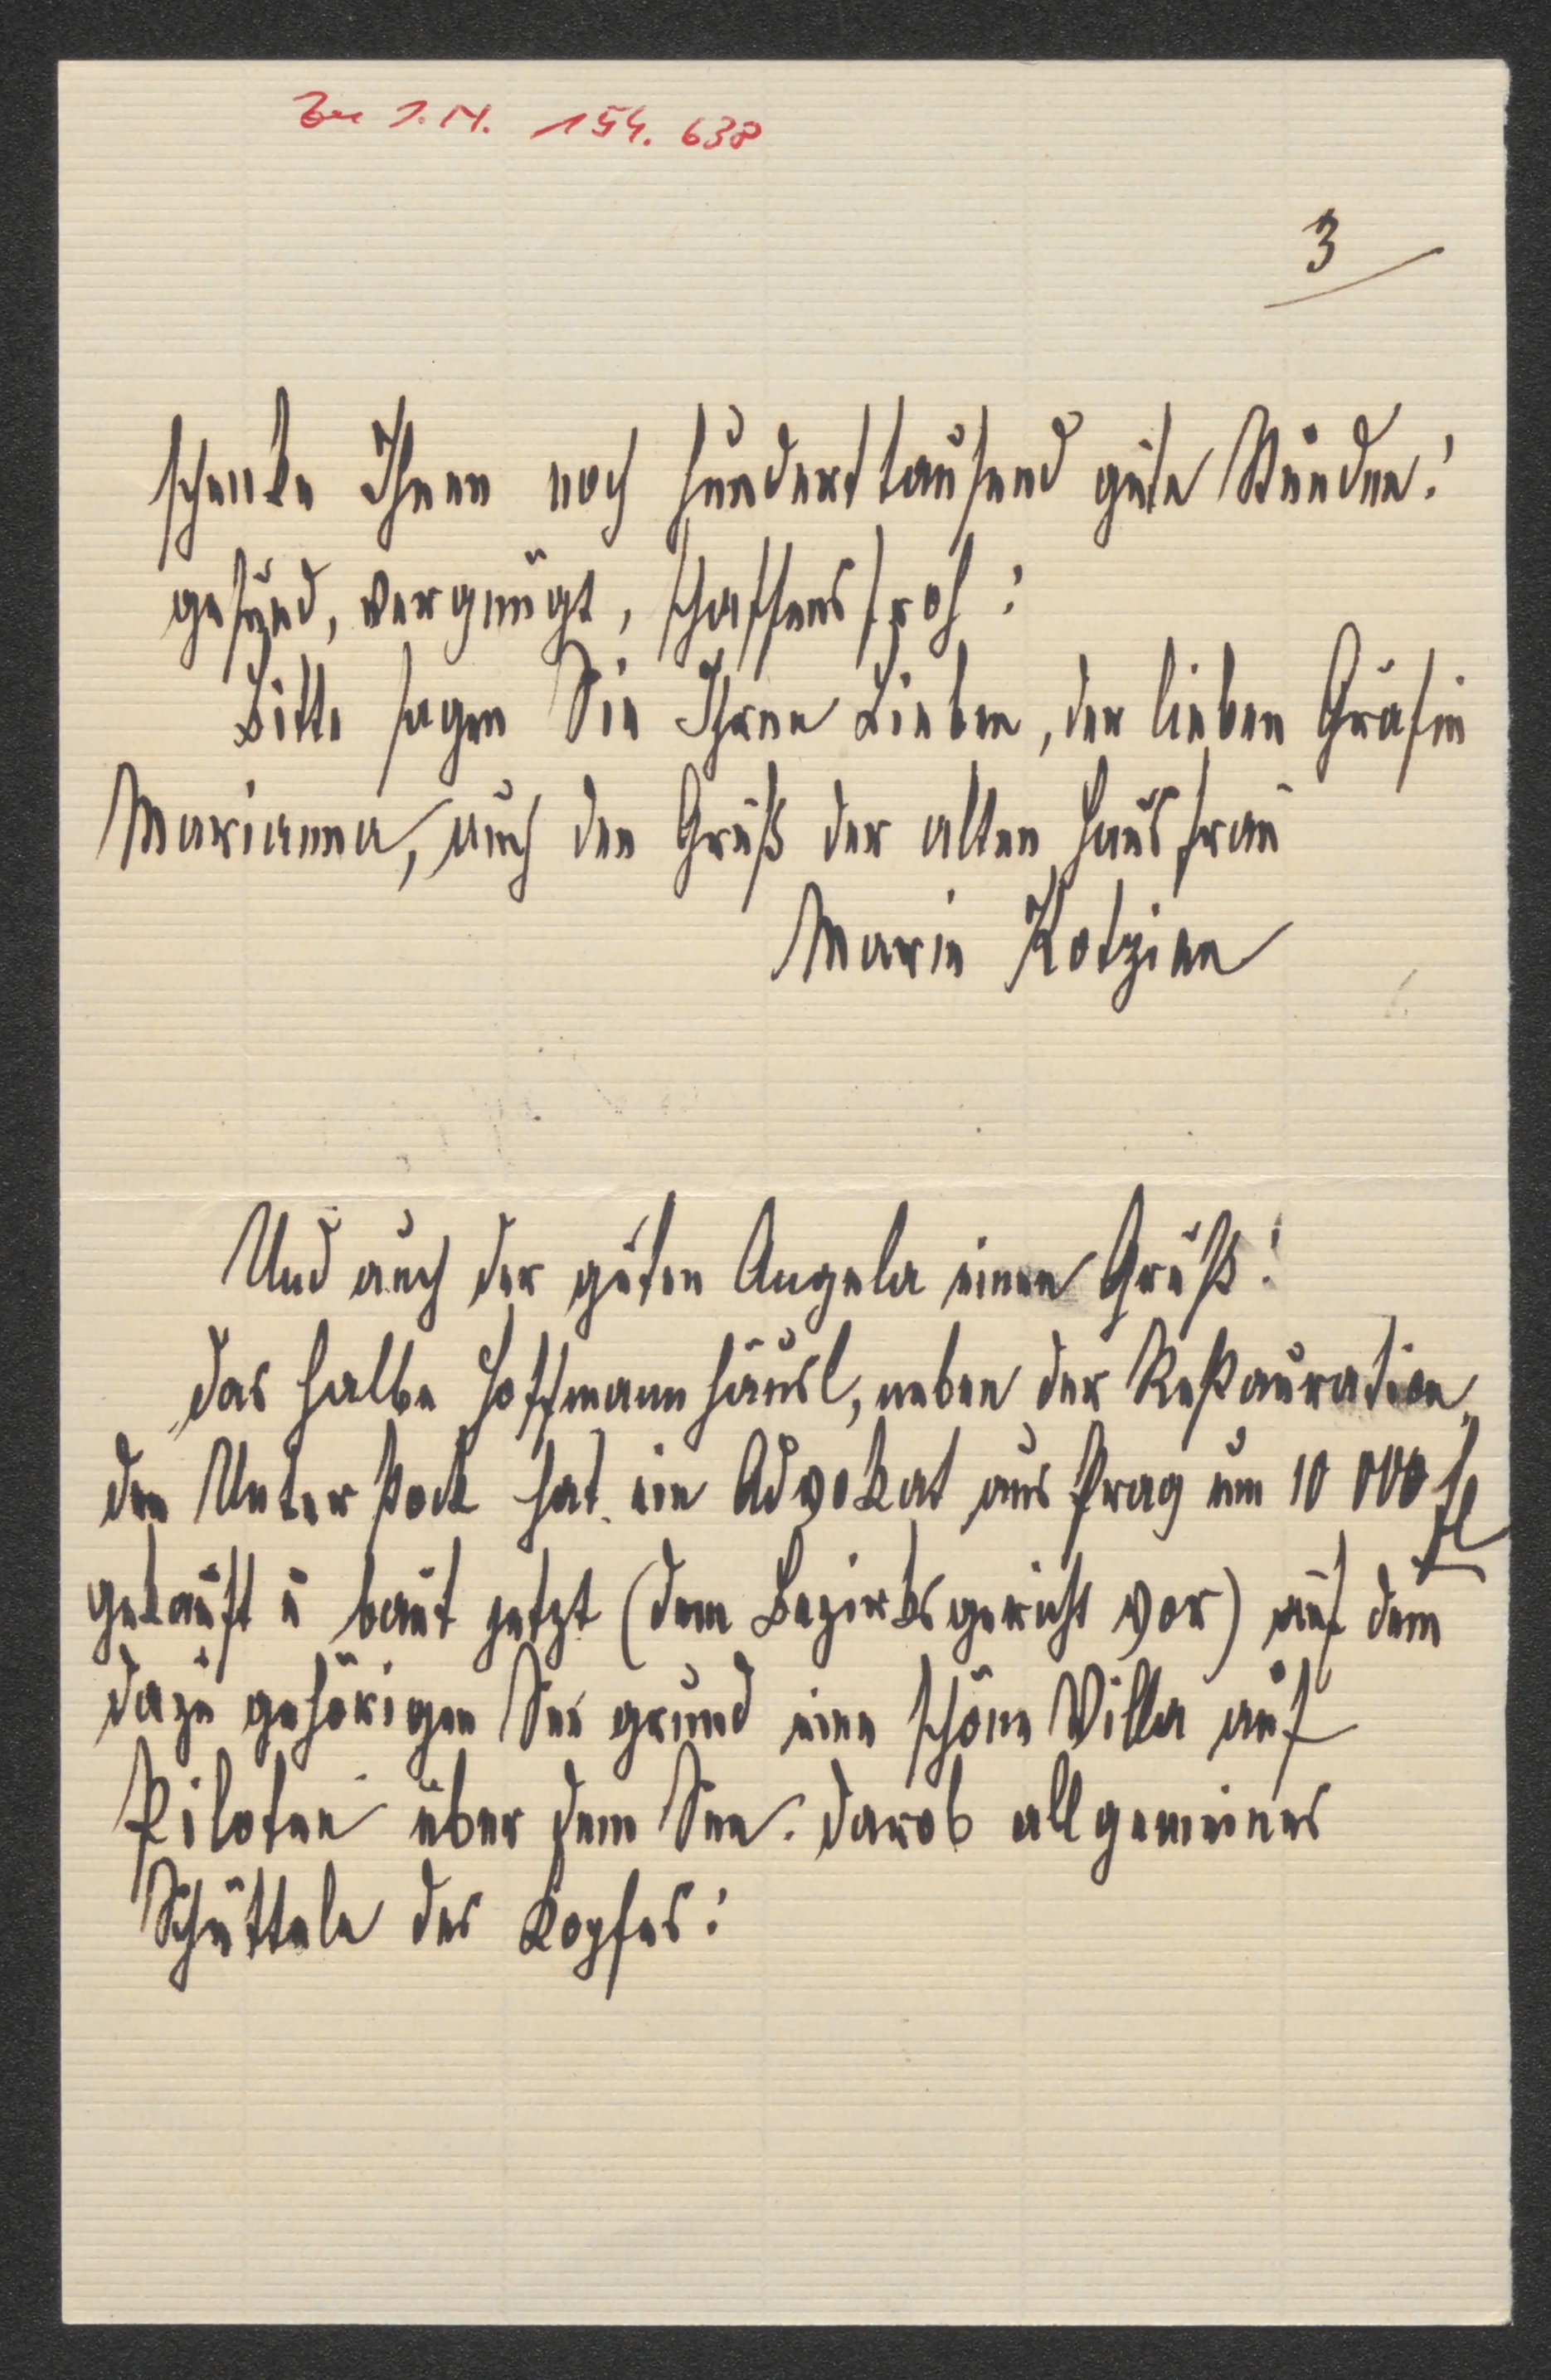 Zu I. N. 154.638
3
schenke Ihnen noch hunderttausend gute Stunden!
gesund, vergnügt, schaffensfroh!
Bitte sagen Sie Ihren Lieben, der lieben Gräfin
Marianna, auch den Gruß der alten Hausfrau
Marie Kotzian
Und auch der guten Angela einen Gruß!
Das halbe Hoffmannhäusl, neben der Restauration,
den Unterstock hat ein Advokat aus Prag um 10 000 fl
gekauft ū baut jetzt (dem Bezirksgericht vor) auf dem
dazu gehörigen Seegrund eine schöne Villa auf
Piloten über dem See. Darob allgemeines
Schütteln des Kopfes!